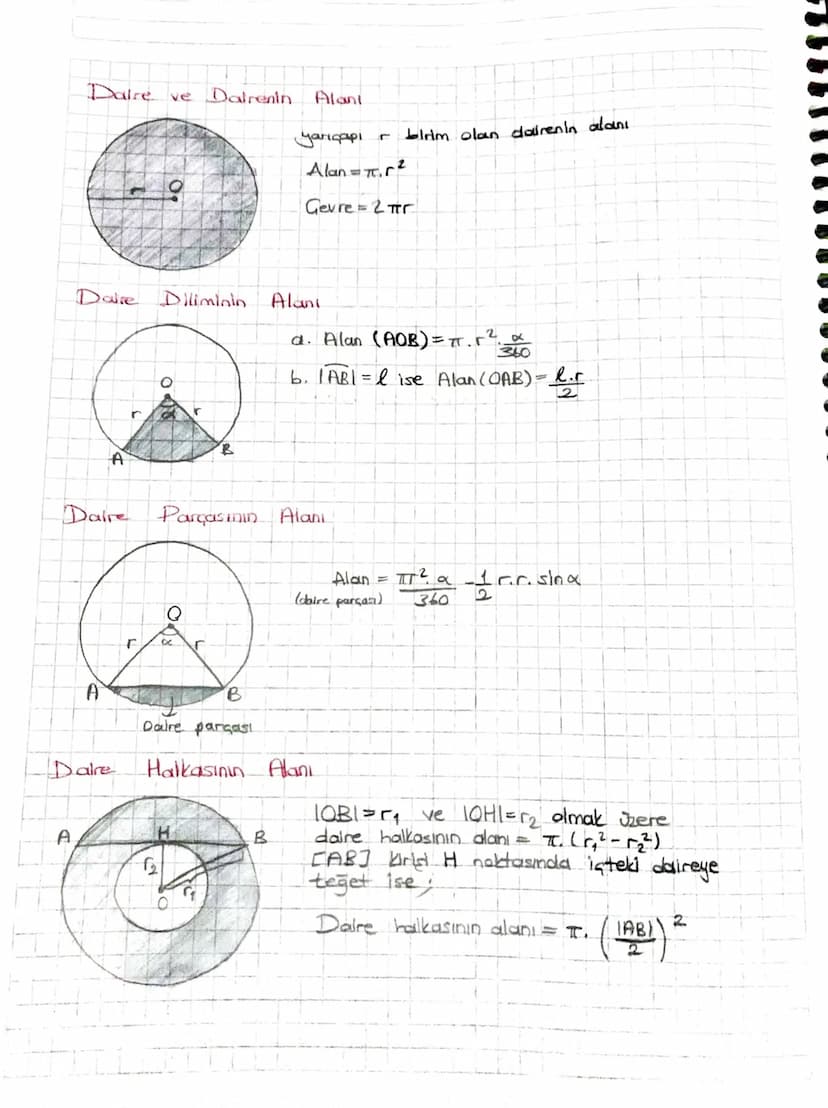 Daire ve Dairenin Alanı
r O
yarıçapı r birim olan dairenin alanı
Alan = π.r²
Çevre = 2πr
Daire Diliminin Alanı
O
r α r
A B
a. Alan (AOB) = π.r².α/360
b. |AB| = ℓ ise Alan(OAB) = ℓ.r/2
Daire Parçasının Alanı
O
r α r
A B
Daire parçası
Alan = πr².α/360 - 1/2 r.r.sinα
(daire parçası)
Daire Halkasının Alanı
A H B
r₂ r₁
O
|OB| = r₁ ve |OH| = r₂ olmak üzere
daire halkasının alanı = π.(r₁² - r₂²)
[AB] kirişi H noktasında içteki daireye
teğet ise;
Daire halkasının alanı = π.(|AB|/2)²